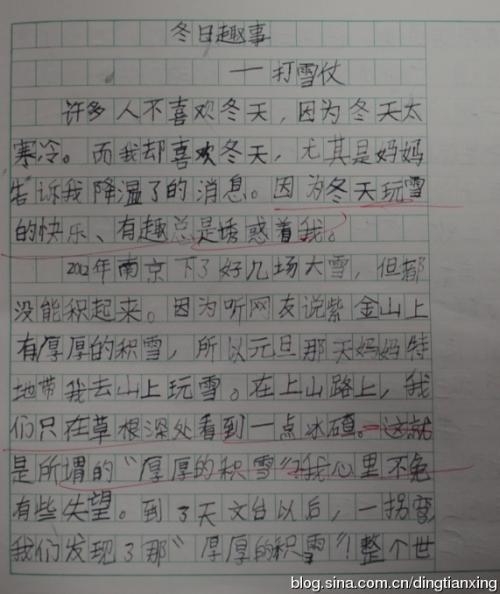 冬日趣事
——打雪仗
许多人不喜欢冬天，因为冬天太
寒冷。而我却喜欢冬天，尤其是妈妈
告诉我降温了的消息。因为冬天玩雪
的快乐、有趣总是诱惑着我。
2012年南京下了好几场大雪，但都
没能积起来。因为听网友说紫金山上
有厚厚的积雪，所以元旦那天妈妈特
地带我去山上玩雪。在上山路上，我
们只在草根深处看到一点冰碴。这就
是所谓的“厚厚的积雪”？我心里不免
有些失望。到了天文台以后，一拐弯
我们发现了那“厚厚的积雪”！整个世
blog.sina.com.cn/dingtianxing